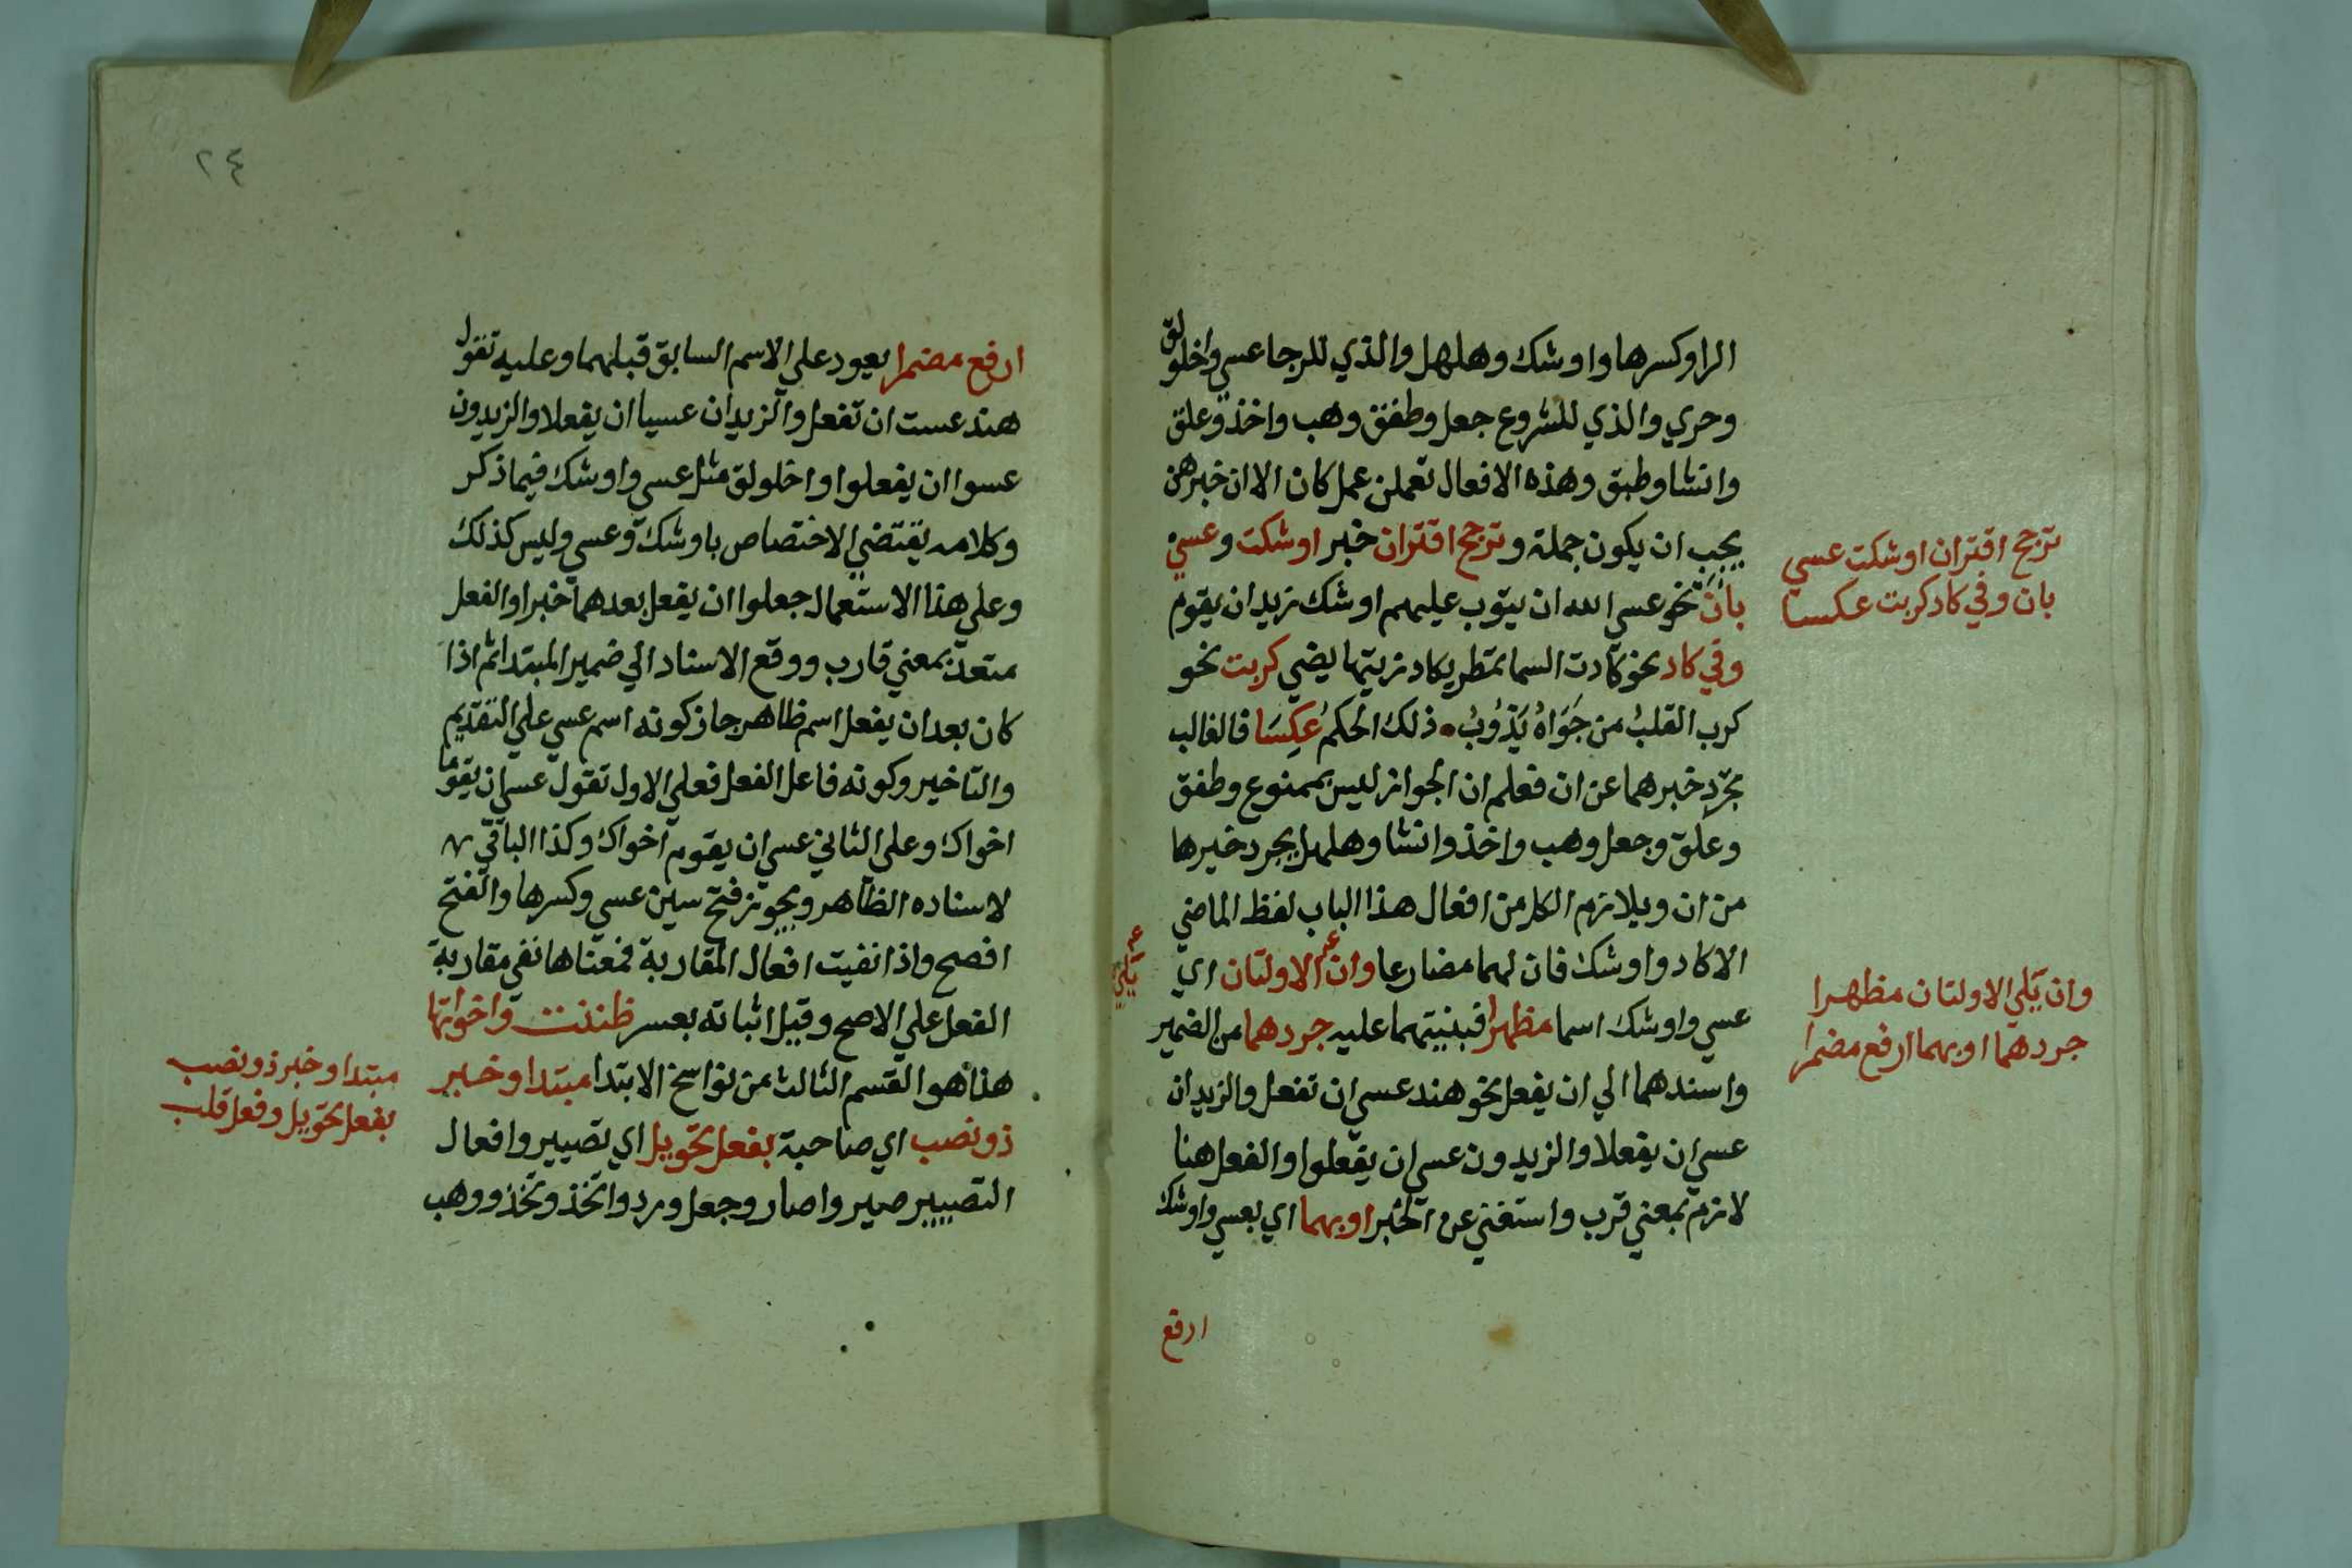 الرا وكسرها واوشك وهلهل والذي للرجا عسي واخلولق
وحري والذي للشروع جعل وطفق وهب واخذ وعلق
وانشا وطبق وهذه الافعال تعملن عمل كان الا ان خبرهن
يجب ان يكون جملة وترجح اقتران خبر اوشكت وعسي
بان نحو عسي الله ان يتوب عليهم اوشك زيد ان يقوم
وفي كاد نحو كادت السما تمطر يكاد زيتها يضي كربت نحو
كرب القلبُ من جَوَاهُ يَذُوبُ ذلك الحكمُ عكِسَا فالغالب
تجرد خبرهما عن ان فعلم ان الجواز ليس بممنوع وطفق
وعلق وجعل وهب واخذ وانشا وهلهل يجرد خبرها
من ان ويلازم الكل من افعال هذا الباب لفظ الماضي
الا كاد واوشك فان لهما مضارعا وان الاولتان اي
يلي
عسي واوشك اسما مظهرا فبنيتهما عليه جردهما من الضمير
واسندهما الي ان يفعل نحو هند عسي ان تفعل والزيدان
عسي ان يفعلا والزيدون عسي ان يفعلوا والفعل هنا
لازم بمعني قرب واستغني عن الخبر او بهما اي بعسي واوشك
ارفع
ترجح اقتران اوشكت عسي
بان وفي كاد كربت عكسا
وان يلي الاولتان مظهرا
جردهما او بهما ارفع مضمرا
٢٤
ارفع مضمرا يعود علي الاسم السابق قبلهما وعليه تقول
هند عست ان تفعل والزيدان عسيا ان يفعلا والزيدون
عسوا ان يفعلوا واخلولق مثل عسي واوشك فيما ذكر
وكلامه يقتضي الاختصاص باوشك وعسي وليس كذلك
وعلي هذا الاستعمال جعلوا ان يفعل بعدهما خبرا والفعل
متعد بمعني قارب ووقع الاسناد الي ضمير المبتدا ثم اذا
كان بعد ان يفعل اسم ظاهر جاز كونه اسم عسي علي التقديم
والتاخير وكونه فاعل الفعل فعلي الاول تقول عسي ان يقوما
اخواك وعلي الثاني عسي ان يقوم اخواك وكذا الباقي
لاسناده الظاهر ويجوز فتح سين عسي وكسرها والفتح
افصح واذا نفيت افعال المقاربة فمعناها نفي مقاربة
الفعل علي الاصح وقيل اثباته بعسر ظننت واخواتها
هذا هو القسم الثالث من نواسخ الابتدا مبتدا وخبر
ذو نصب اي صاحبة بفعل تحويل اي تصيير وافعال
التصيير صير واصار وجعل ورد واتخذ وتخذ ووهب
مبتدا وخبر ذو نصب
بفعل تحويل وفعل قلب